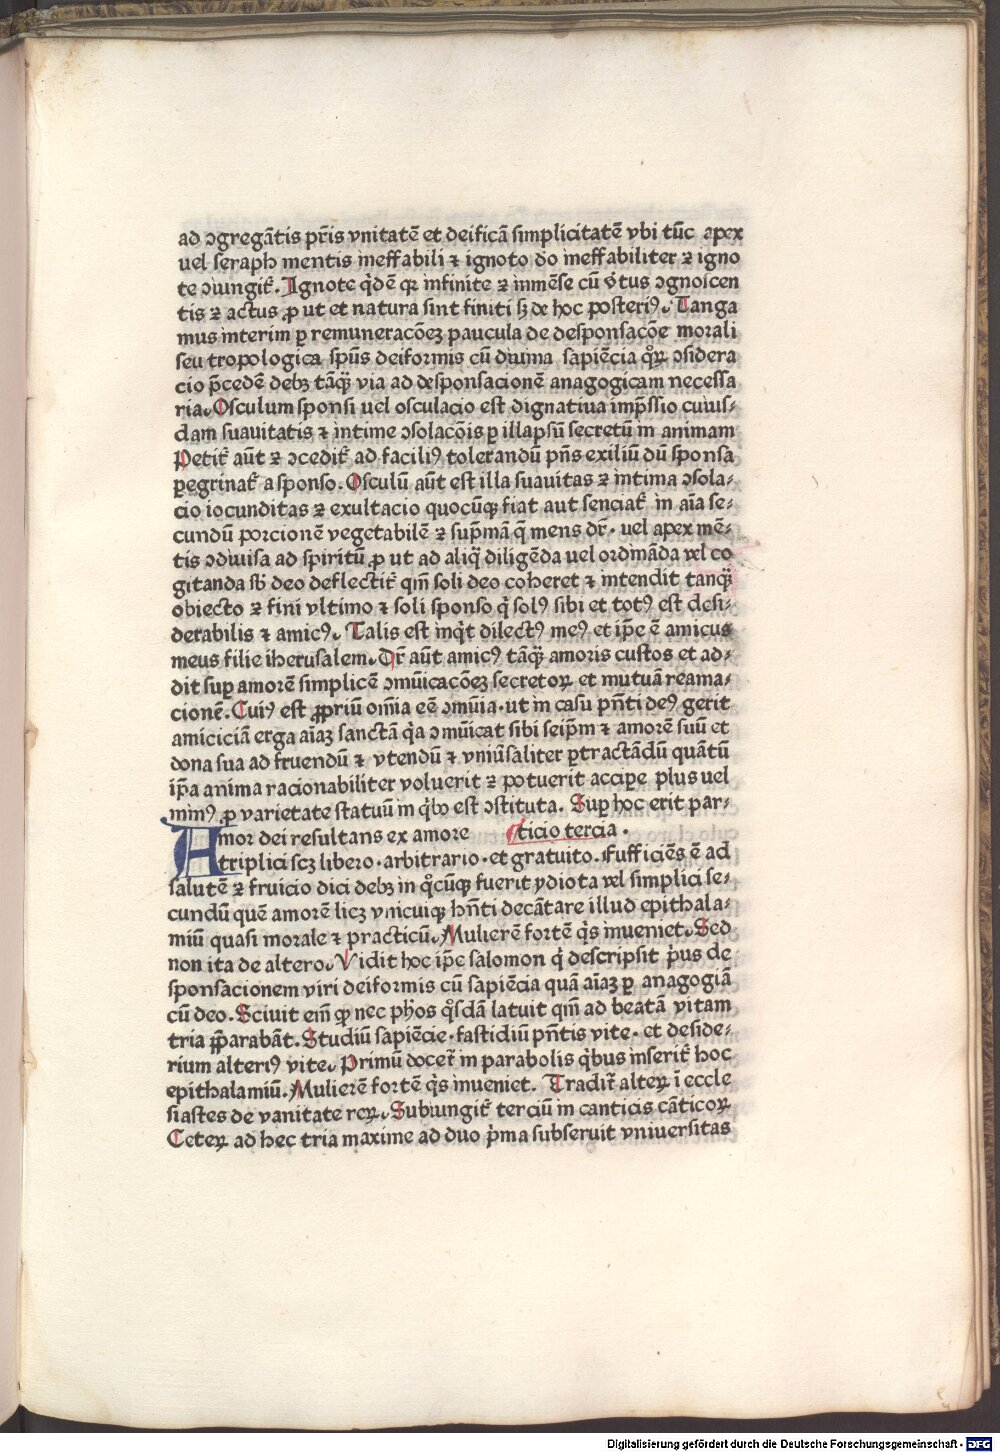 ad ɔgregãtis pr̃is vnitatẽ et deificã simplicitatẽ vbi tũc apex
uel seraph mentis ineffabili ⁊ ignoto dõ ineffabiliter ⁊ igno
te ɔiungit᷑. Ignote q̇dẽ qꝛ infinite ⁊ inmẽse cũ v̾tus ɔgnoscen
tis ⁊ actus ꝓ ut et natura sint finiti sꝫ de hoc posteriꝰ. Tanga
mus interim ꝑ remuneracõeꝫ paucula de desponsacõe morali
seu tropologica spũs deiformis cũ diuina sapiẽcia qͦꝝ ɔsidera
cio p̃cedẽ debꝫ tãq̃ via ad desponsacionẽ anagogicam necessa
ria. Osculum sponsi uel osculacio est dignatiua imp̃ssio cuius-
dam suauitatis ⁊ intime ɔsolacõis ꝑ illapsũ secretũ in animam
Petit᷑ aũt ⁊ ɔcedit᷑ ad faciliꝰ tolerandũ pñs exiliũ dũ sponsa
ꝑegrinat᷑ a sponso. Osculũ aũt est illa suauitas ⁊ intima ɔsola-
cio iocunditas ⁊ exultacio quocũqꝫ fiat aut senciat᷑ in aĩa se-
cundũ porcionẽ vegetabilẽ ⁊ sup̃mã q̃ mens dr̃. uel apex mẽ-
tis ɔdiuisa ad spiritũ ꝓ ut ad aliq̃ diligẽda uel ordinãda vel co
gitanda sb̾ deo deflectit᷑ qm̃ soli deo coheret ⁊ intendit tanq̃
obiecto ⁊ fini vltimo ⁊ soli sponso q̇ solꝰ sibi et totꝰ est desi-
derabilis ⁊ amicꝰ. Talis est inq̇t dilectꝰ meꝰ et ip̃e ẽ amicus
meus filie iherusalem. Dr̃ aũt amicꝰ tãq̃ amoris custos et ad-
dit suꝑ amorẽ simplicẽ ɔmũicacõeꝫ secretoꝝ et mutuã reama-
cionẽ. Cuiꝰ est ꝓpriũ om̃ia eẽ ɔmũia. ut in casu pñti deꝰ gerit
amiciciã erga aĩaꝫ sanctã q̇a ɔmũicat sibi seip̃m ⁊ amorẽ suũ et
dona sua ad fruendũ ⁊ vtendũ ⁊ vniũsaliter ꝑtractãdũ quãtũ
ip̃a anima racionabiliter voluerit ⁊ potuerit accipe plus uel
minꝰ ꝓ varietate statuũ in q̇bꝰ est ɔstituta. Suꝑ hoc erit par-
Amor dei resultans ex amore ticio tercia.
triplici scꝫ libero. arbitrario. et gratuito. sufficiẽs ẽ ad
salutẽ ⁊ fruicio dici debꝫ in qͦcũqꝫ fuerit ydiota vel simplici se-
cundũ quẽ amorẽ licꝫ vnicuiqꝫ hñti decãtare illud epithala-
miũ quasi morale ⁊ practicũ. Mulierẽ fortẽ q̇s inueniet. Sed
non ita de altero. Vidit hoc ip̃e salomon q̇ descripsit p̾us de
sponsacionem viri deiformis cũ sapiẽcia quã aĩaꝫ ꝑ anagogiã
cũ deo. Sciuit em̃ ꝙ nec ph̃os qͦsdã latuit qm̃ ad beatã vitam
tria p̃parabãt. Studiũ sapiẽcie. fastidiũ pñtis vite. et deside-
rium alteriꝰ vite. Primũ docet᷑ in parabolis q̇bus inserit᷑ hoc
epithalamiũ. Mulierẽ fortẽ q̇s inueniet. Tradit᷑ alteꝝ ĩ eccle
siastes de vanitate reꝝ. Subiungit᷑ terciũ in canticis cãticoꝝ
Ceteꝝ ad hec tria maxime ad duo p̾ma subseruit vniuersitas
Digitalisierung gefördert durch die Deutsche Forschungsgemeinschaft - DFG